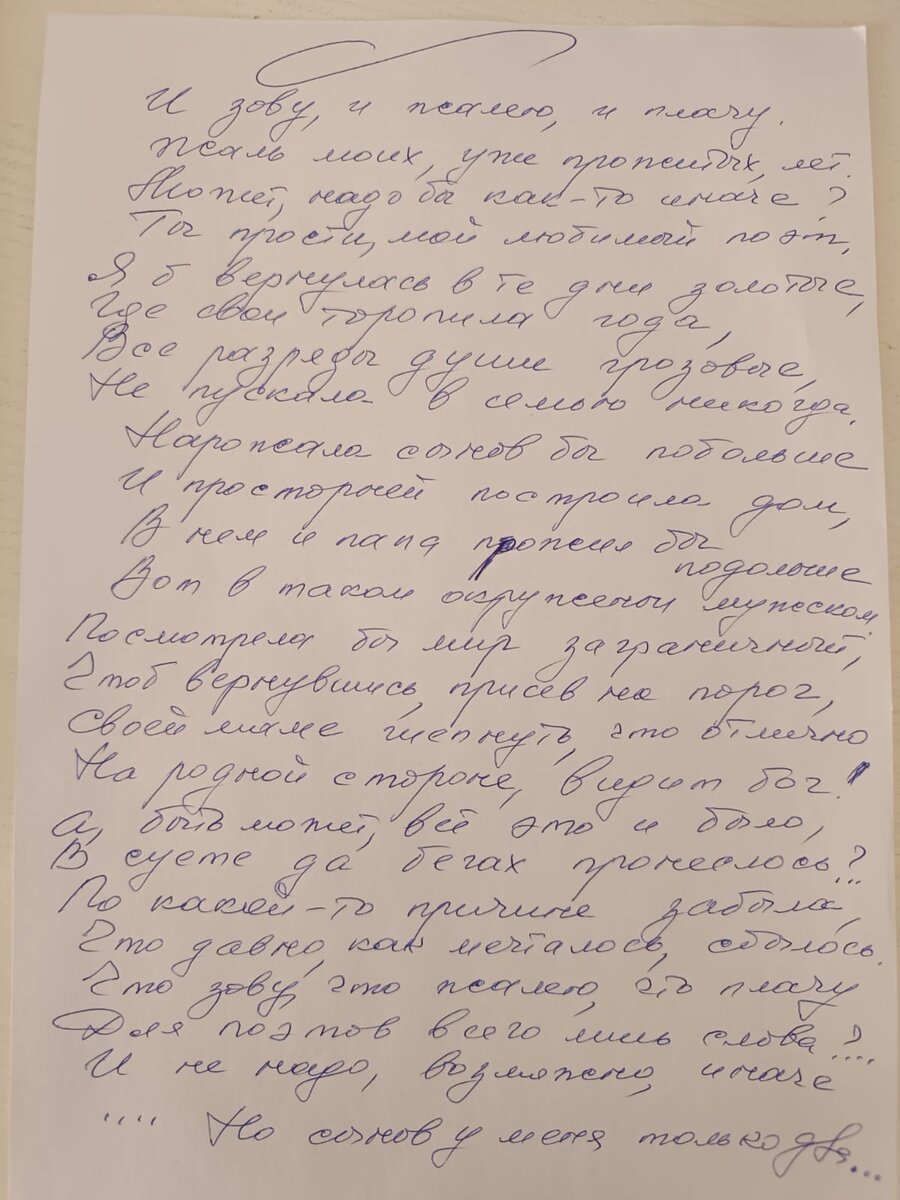 И зову, и жалею, и плачу.
Жаль моих, уже прожитых, лет.
Может, надо бы как-то иначе?
Ты прости, мой любимый поэт,
Я б вернулась в те дни золотые,
Где свои торопила года,
Все разряды души грозовые,
Не пускала в семью никогда.
Нарожала сынов бы побольше
И просторней построила дом,
В нем и папа прожил бы
подольше
Вот в таком окруженьи мужском.
Посмотрела бы мир заграничный,
Чтоб вернувшись, присев на порог,
Своей маме шепнуть, что отлично
На родной стороне, видит бог!
А, быть может, всё это и было,
В суете да бегах пронеслось?...
По какой-то причине забыла,
Что давно, как мечталось, сбылось.
Что зову, что жалею, что плачу
Для поэтов всего лишь слова?...
И не надо, возможно, иначе
.... Но сынов у меня только два...